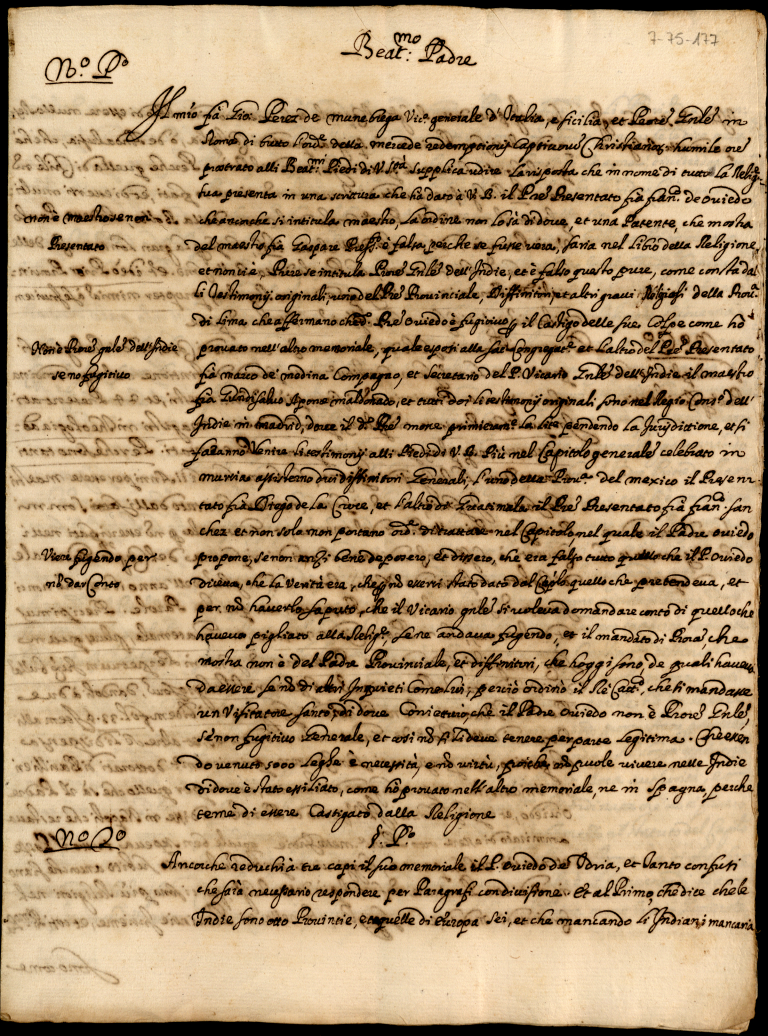 7-75-177
Beat.mo Padre
N.º P.º
Il mro fra Gio: Perez de munebrega Vic.º generale d'Italia, e sicilia, et Proc.re Gnle in
Roma di tutto l'ord.e della mercede redemptionis Captivorum Christianor. humile ore
prostrato alli Beat.mi Piedi di V. S.tà supplica udire la risposta che in nome di tutta la Relig.e
sua presenta in una scrittura che ha dato à V. B. il Pre Presentato fra fran.co de Oviedo
che ancorche si intitula maestro, la ordine non lo sà di dove, et una Patente, che mostra
non è maestro se non
Presentato
del maestro fra Gaspare è falsa perche se fusse vera, saria nel libro della Religione,
et non vi è, Pure se intitula Proc.re Gnle dell'Indie, et è falso questo pure, come consta da
li testimonij originali, uno del Pre Provinciale, Diffinitori et altri gravi Religiosi della Prov.a
di Lima che affermano che d.º Pre Oviedo è fugitivo il Castigo delle sue Colpe come hò
Non è Proc.re gnle dell'Indie
se no fugitivo
provato nell'altro memoriale, quale esposi alla sac. Congregat.e et l'altro del Pre Presentato
fra marco de medina Compagno, et Secretario del P. Vicario Gnle dell'Indie il maestro
fra maldonado, et tutti doi li testimonij originali sono nel Regio Cons.º dell'
Indie in madrid, dove il d.º Pre la lite pendendo la Jurisdictione, et si
faranno Venire li testimonij alli Piedi di V. B. Più nel Capitolo generale celebrato in
murcia assisterno doi diffinitori Generali, l'uno della Prov.a del mexico il Presen-
tato fra Diego de la Cruce, et l'altro di Guatimala il Pre Presentato fra fran.co san-
chez et non solo non portano ord.e di trattare nel Capitolo, nel quale il Padre oviedo
Viene fugendo per
nò dar Conto
propone, se non anzi bene deposero, et dissero, che era falso tutto quello che il P. Oviedo
diceva, che la Verità era, che nò esservi stato dato dal Caplo quello che pretendeva, et
per nò haverlo saputo, che il Vicario gnle si voleva domandare conto di quello che
haveva pigliato alla Relig.e, se ne andava fugendo, et il mandato di Proc.re, che
mostra non è del Padre Provinciale, et diffinitori, che hoggi sono, de quali haveva
da essere, se nò di altri Inquieti Como lui, perciò ordinò il Rè Catt.co che si mandasse
un Visitatore santo, di dove che il Padre Oviedo non è Proc.re Gnle,
se non fugitivo Generale, et cosi nò si li deve tenere per parte legitima. Che essen-
do venuto 5000 Leghe è necessità, e nò virtù, nò puole vivere nelle Indie
di dove è stato essiliato, come hò provato nell'altro memoriale, ne in spagna, perche
teme di essere Castigato dalla Religione
N.º 2.º
§. P.º
Ancorche reduchi à tre capi il suo memoriale il P. Oviedo de Idria, et tanto confuti
che saria necessario respondere per Paragrafi con divisione. Et al Primo, che dice che le
Indie sono otto Provintie, et quelle di Europa sei, et che mancando li Indiani mancaria